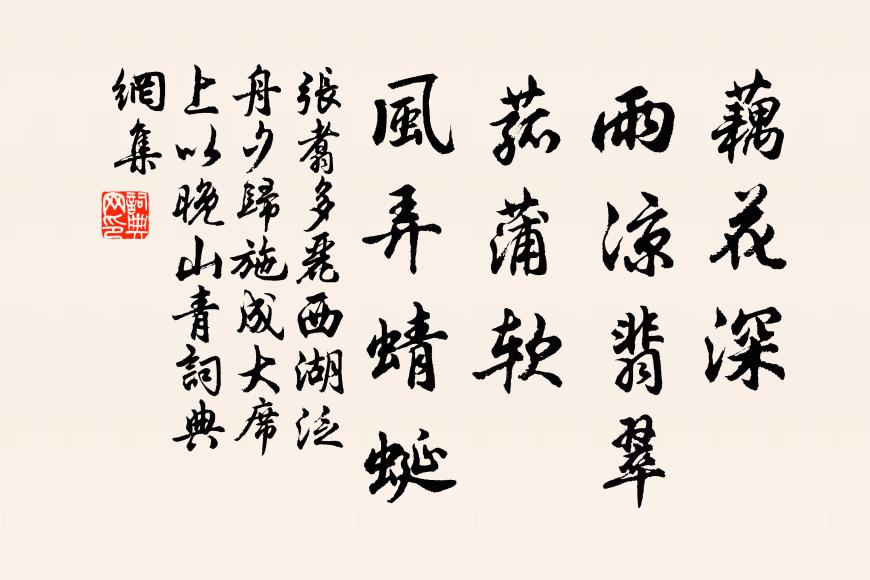 藕花深
雨凉翡翠
菰蒲软
風弄蜻蜓
張翥多麗西湖泛
舟夕歸施成大席
上以晚山青詞典
網集
詞典
网印